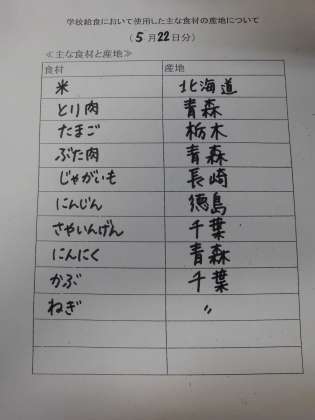 学校給食において使用した主な食材の産地について
(5月22日分)
≪主な食材と産地≫
食材 産地
米 北海道
とり肉 青森
たまご 栃木
ぶた肉 青森
じゃがいも 長崎
にんじん 徳島
さやいんげん 千葉
にんにく 青森
かぶ 千葉
ねぎ 〃